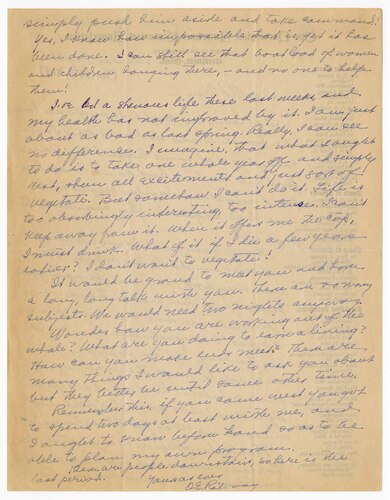 simply push him aside and take command!
Yes, I know how impossible that is, yet it has
been done. I can still see that boat load of women
and children hanging there, – and no one to help
them!
I've led a strenuous life these last weeks, and
my health has not improved by it. I am just
about as bad as last spring. Really, I can see
no difference. I imagine, that what I ought
to do is to take one whole year off and simply
rest, shun all excitements and just sort of
vegetate. But somehow I can't do it. Life is
too absorbingly interesting, too intense. I can't
keep away from it. When it offers me the cup,
I must drink. What if it I die a few years
earlier? I don't want to vegetate!
It would be grand to meet you and have
a long, long talk with you. There are so many
subjects. We would need two nights anyway.
Wonder how you are working out of the
whole? What are you doing to earn a living?
How can you make ends meet? There are
many things I would like to ask you about
but they better be until some other time.
Remember this, if you come west you got
to spend two days at least with me, and
I ought to know before hand so as to be
able to plan my own program.
There are people downstairs, so here is the
last period. Yours as ever